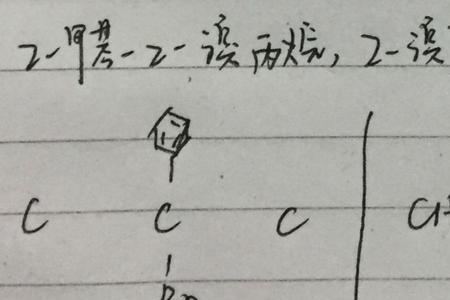 2-甲基-2-溴丙烷, 2-溴
C C C CH
Br